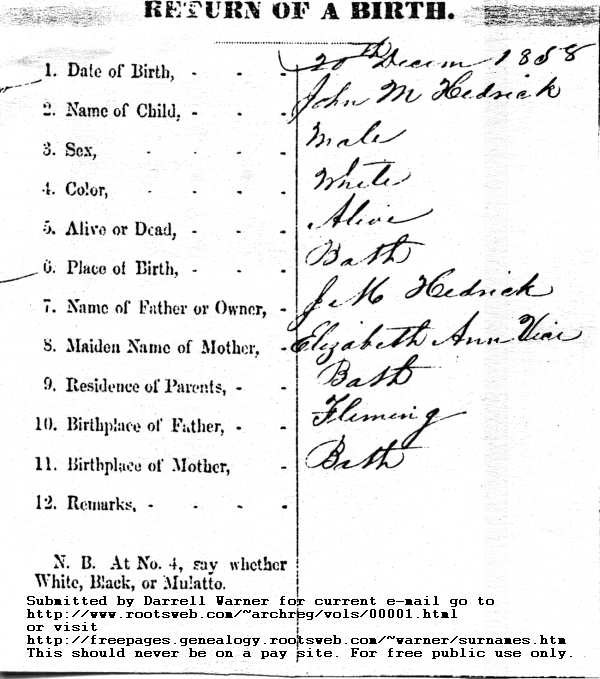 RETURN OF A BIRTH.
1. Date of Birth, - - - 20th Decem 1858
2. Name of Child, - - - John M Hedrick
3. Sex, - - - - Male
4. Color, - - - - White
5. Alive or Dead, - - - Alive
6. Place of Birth, - - - Bath
7. Name of Father or Owner, - J M Hedrick
8. Maiden Name of Mother, - Elizabeth Ann Vice
9. Residence of Parents, - - Bath
10. Birthplace of Father, - - Fleming
11. Birthplace of Mother, - Bath
12. Remarks, - - - -
N. B. At No. 4, say whether
White, Black, or Mulatto.
Submitted by Darrell Warner for current e-mail go to
http://www.rootsweb.com/~archreg/vols/00001.html
or visit
http://freepages.genealogy.rootsweb.com/~warner/surnames.htm
This should never be on a pay site. For free public use only.